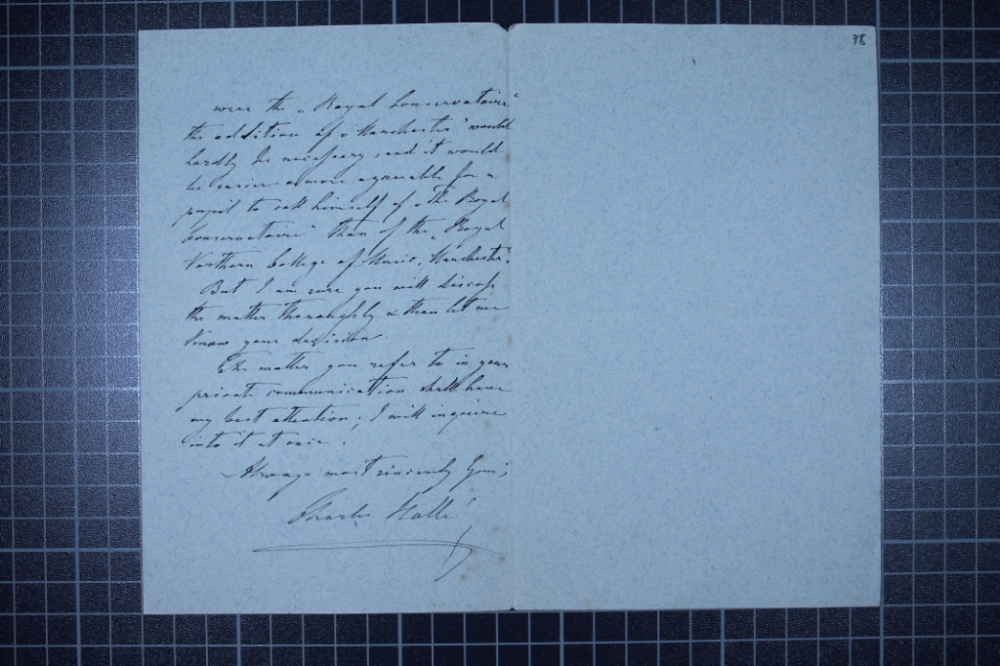 98
were the „Royal Conservatoire“
the addition of „Manchester“ would
hardly be necessary, and it would
be easier & more agreeable for a
pupil to call himself of „The Royal
Conservatoire“ than of the „Royal
Northern College of Music, Manchester“.
But I am sure you will discuss
the matter thoroughly & then let me
know your decision.
The matter you refer to in your
private communication shall have
my best attention; I will inquire
into it at once.
Always most sincerely Yours
Charles Hallé